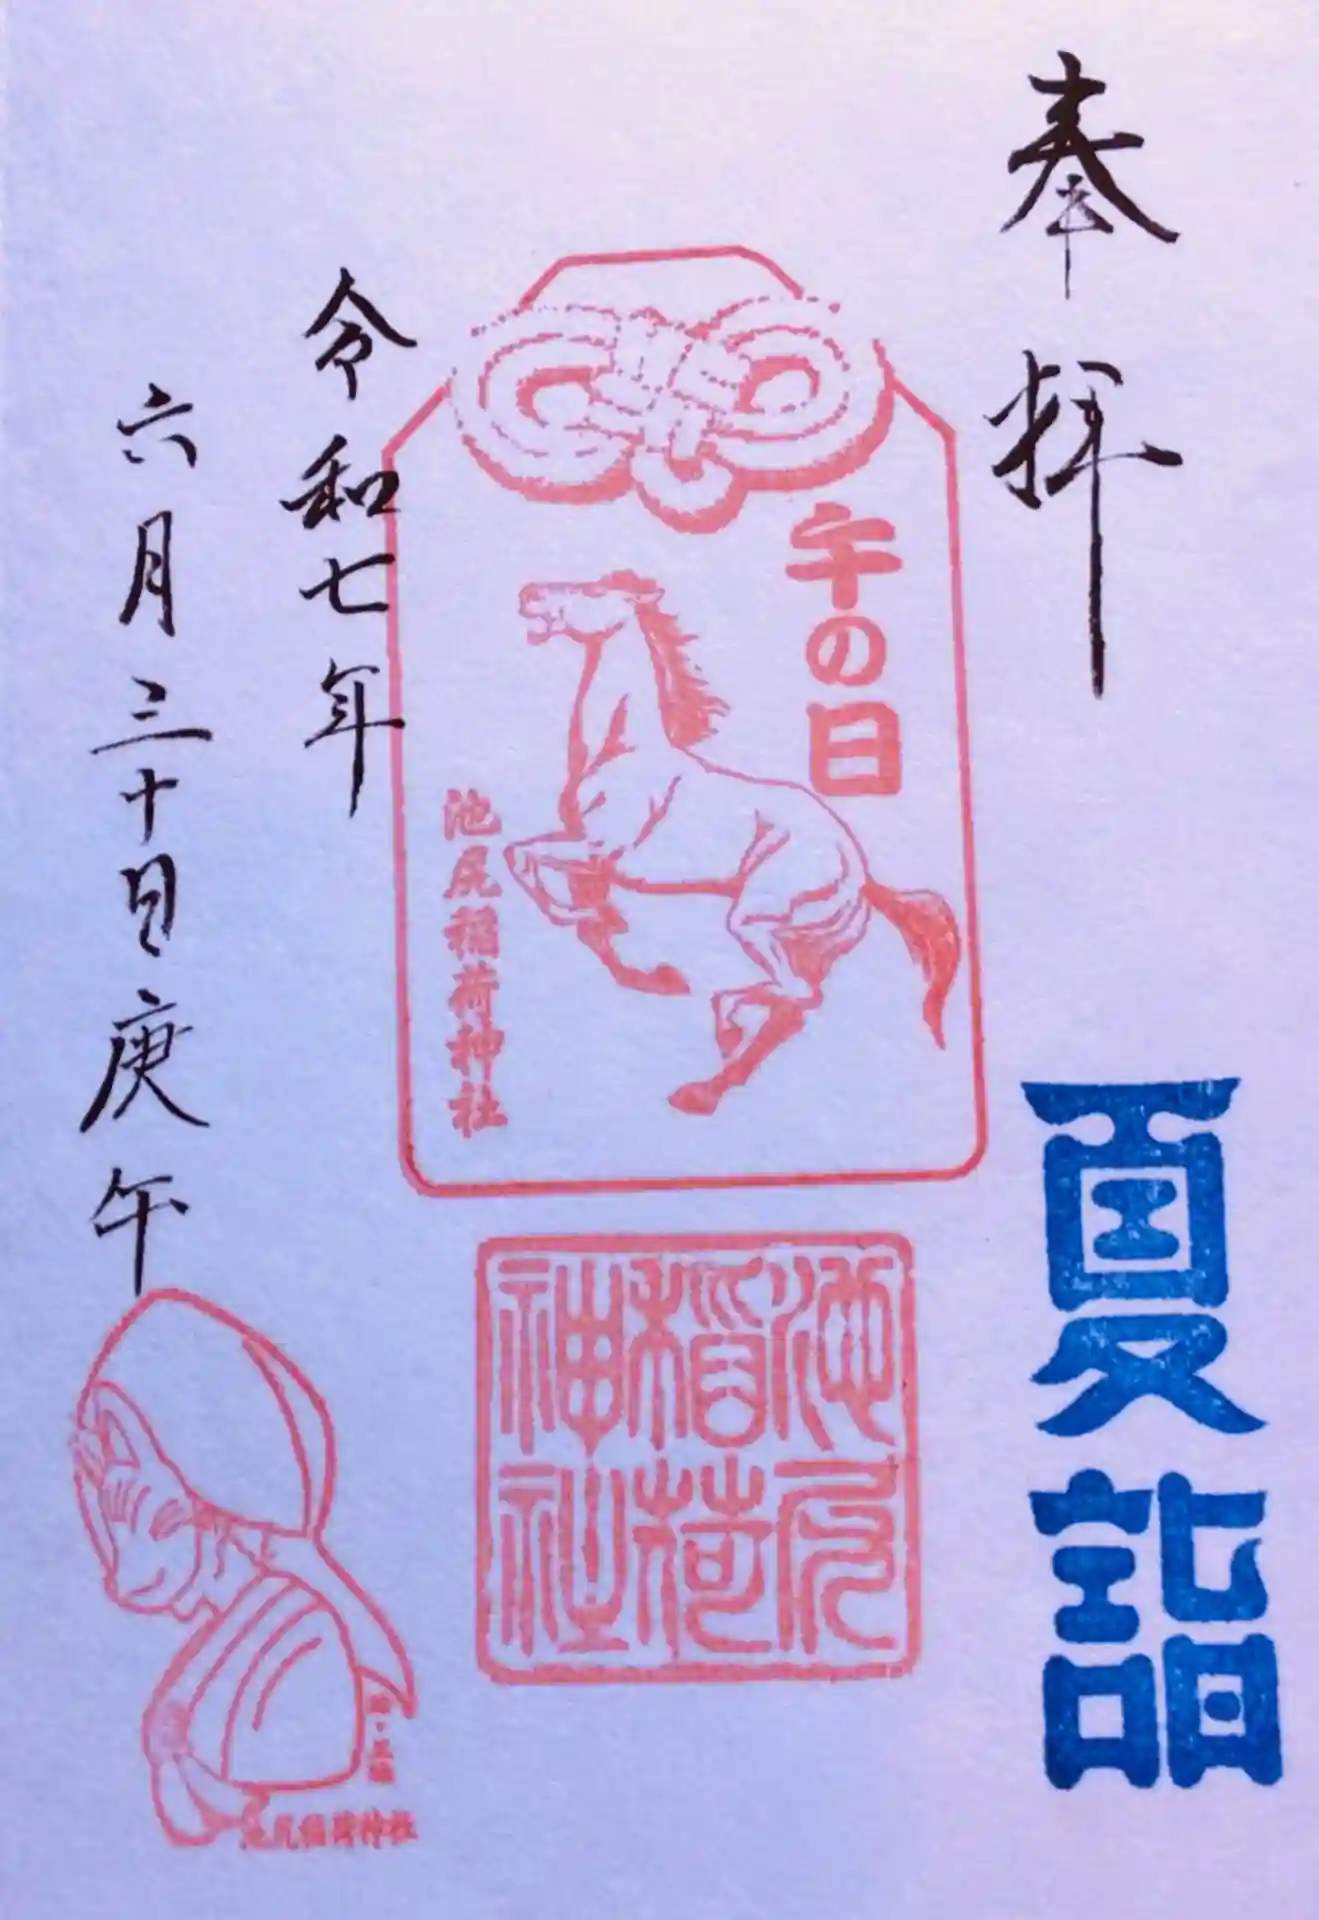 奉拝
夏詣
午の日
池尻稲荷神社
池尻
稲荷
神社
令和七年
六月三十日庚午
池尻稲荷神社